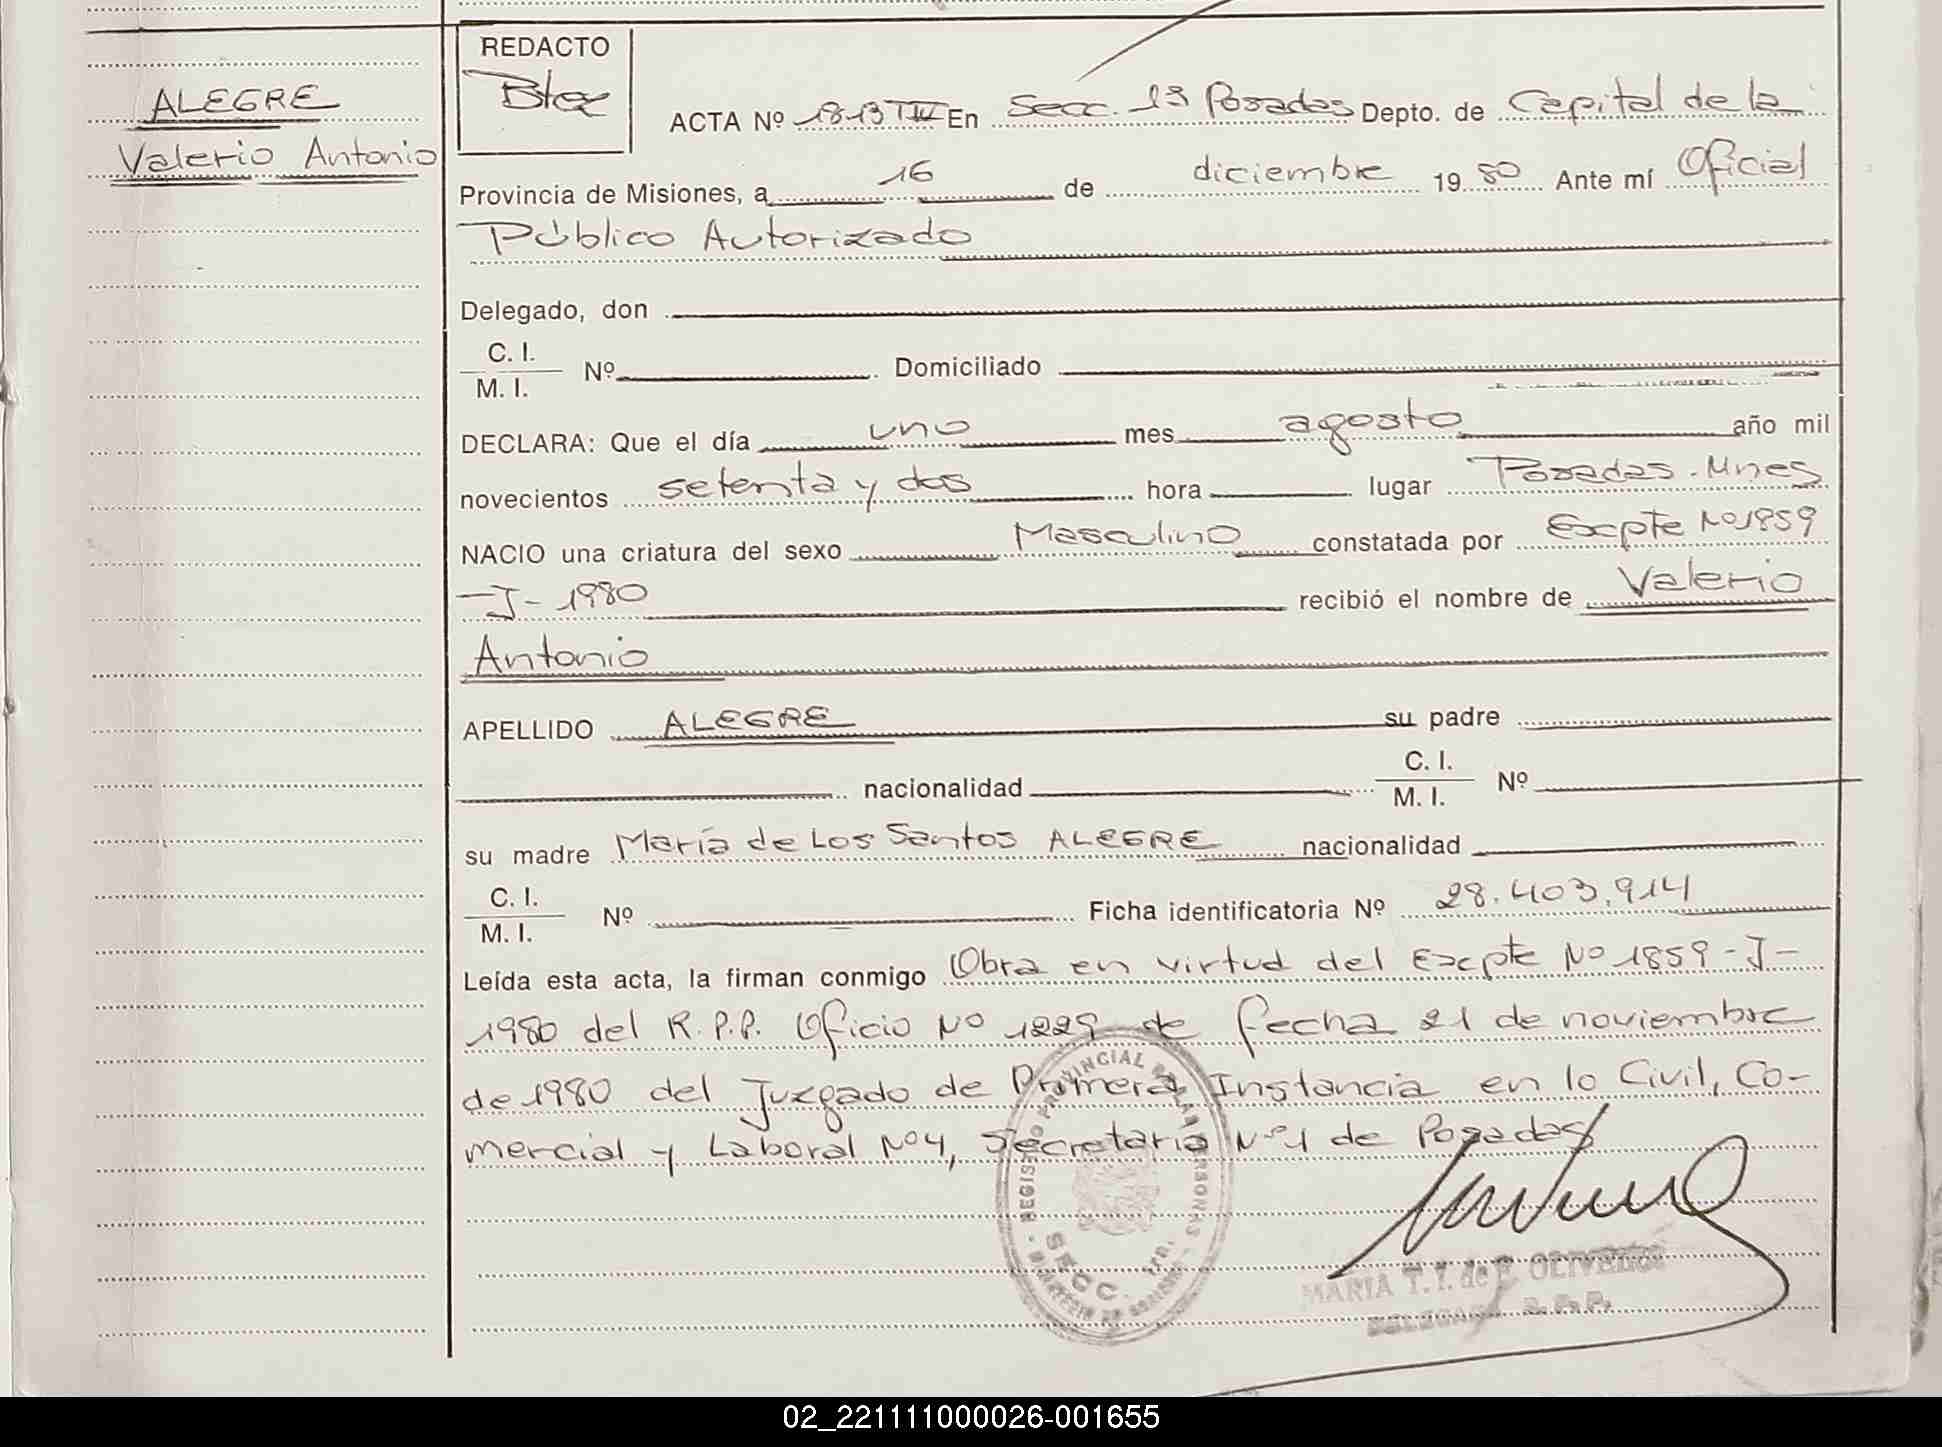 REDACTO
ALEGRE
Valerio Antonio
ACTA Nº 1813 T IV En Secc. 1ª Posadas Depto. de Capital de la
Provincia de Misiones, a 16 de diciembre 1980 Ante mí Oficial
Público Autorizado
Delegado, don
C. I.
M. I. Nº Domiciliado
DECLARA: Que el día uno mes agosto año mil
novecientos setenta y dos hora lugar Posadas-Mnes
NACIO una criatura del sexo Masculino constatada por Excpte Nº1859
-J-1980 recibió el nombre de Valerio
Antonio
APELLIDO ALEGRE su padre
nacionalidad C. I.
M. I. Nº
su madre María de Los Santos ALEGRE nacionalidad
C. I.
M. I. Nº Ficha identificatoria Nº 28.403.914
Leída esta acta, la firman conmigo Obra en virtud del Excpte Nº 1859-J-
1980 del R.P.P. Oficio Nº 1229 de fecha 21 de noviembre
de 1980 del Juzgado de Primera Instancia en lo Civil, Co-
mercial y Laboral Nº4, Secretaria Nº1 de Posadas
REGISTRO PROVINCIAL DE LAS PERSONAS
SECC. 1ra.
MARIA T. I. de OLIVEROS
R. P. P.
02_221111000026-001655